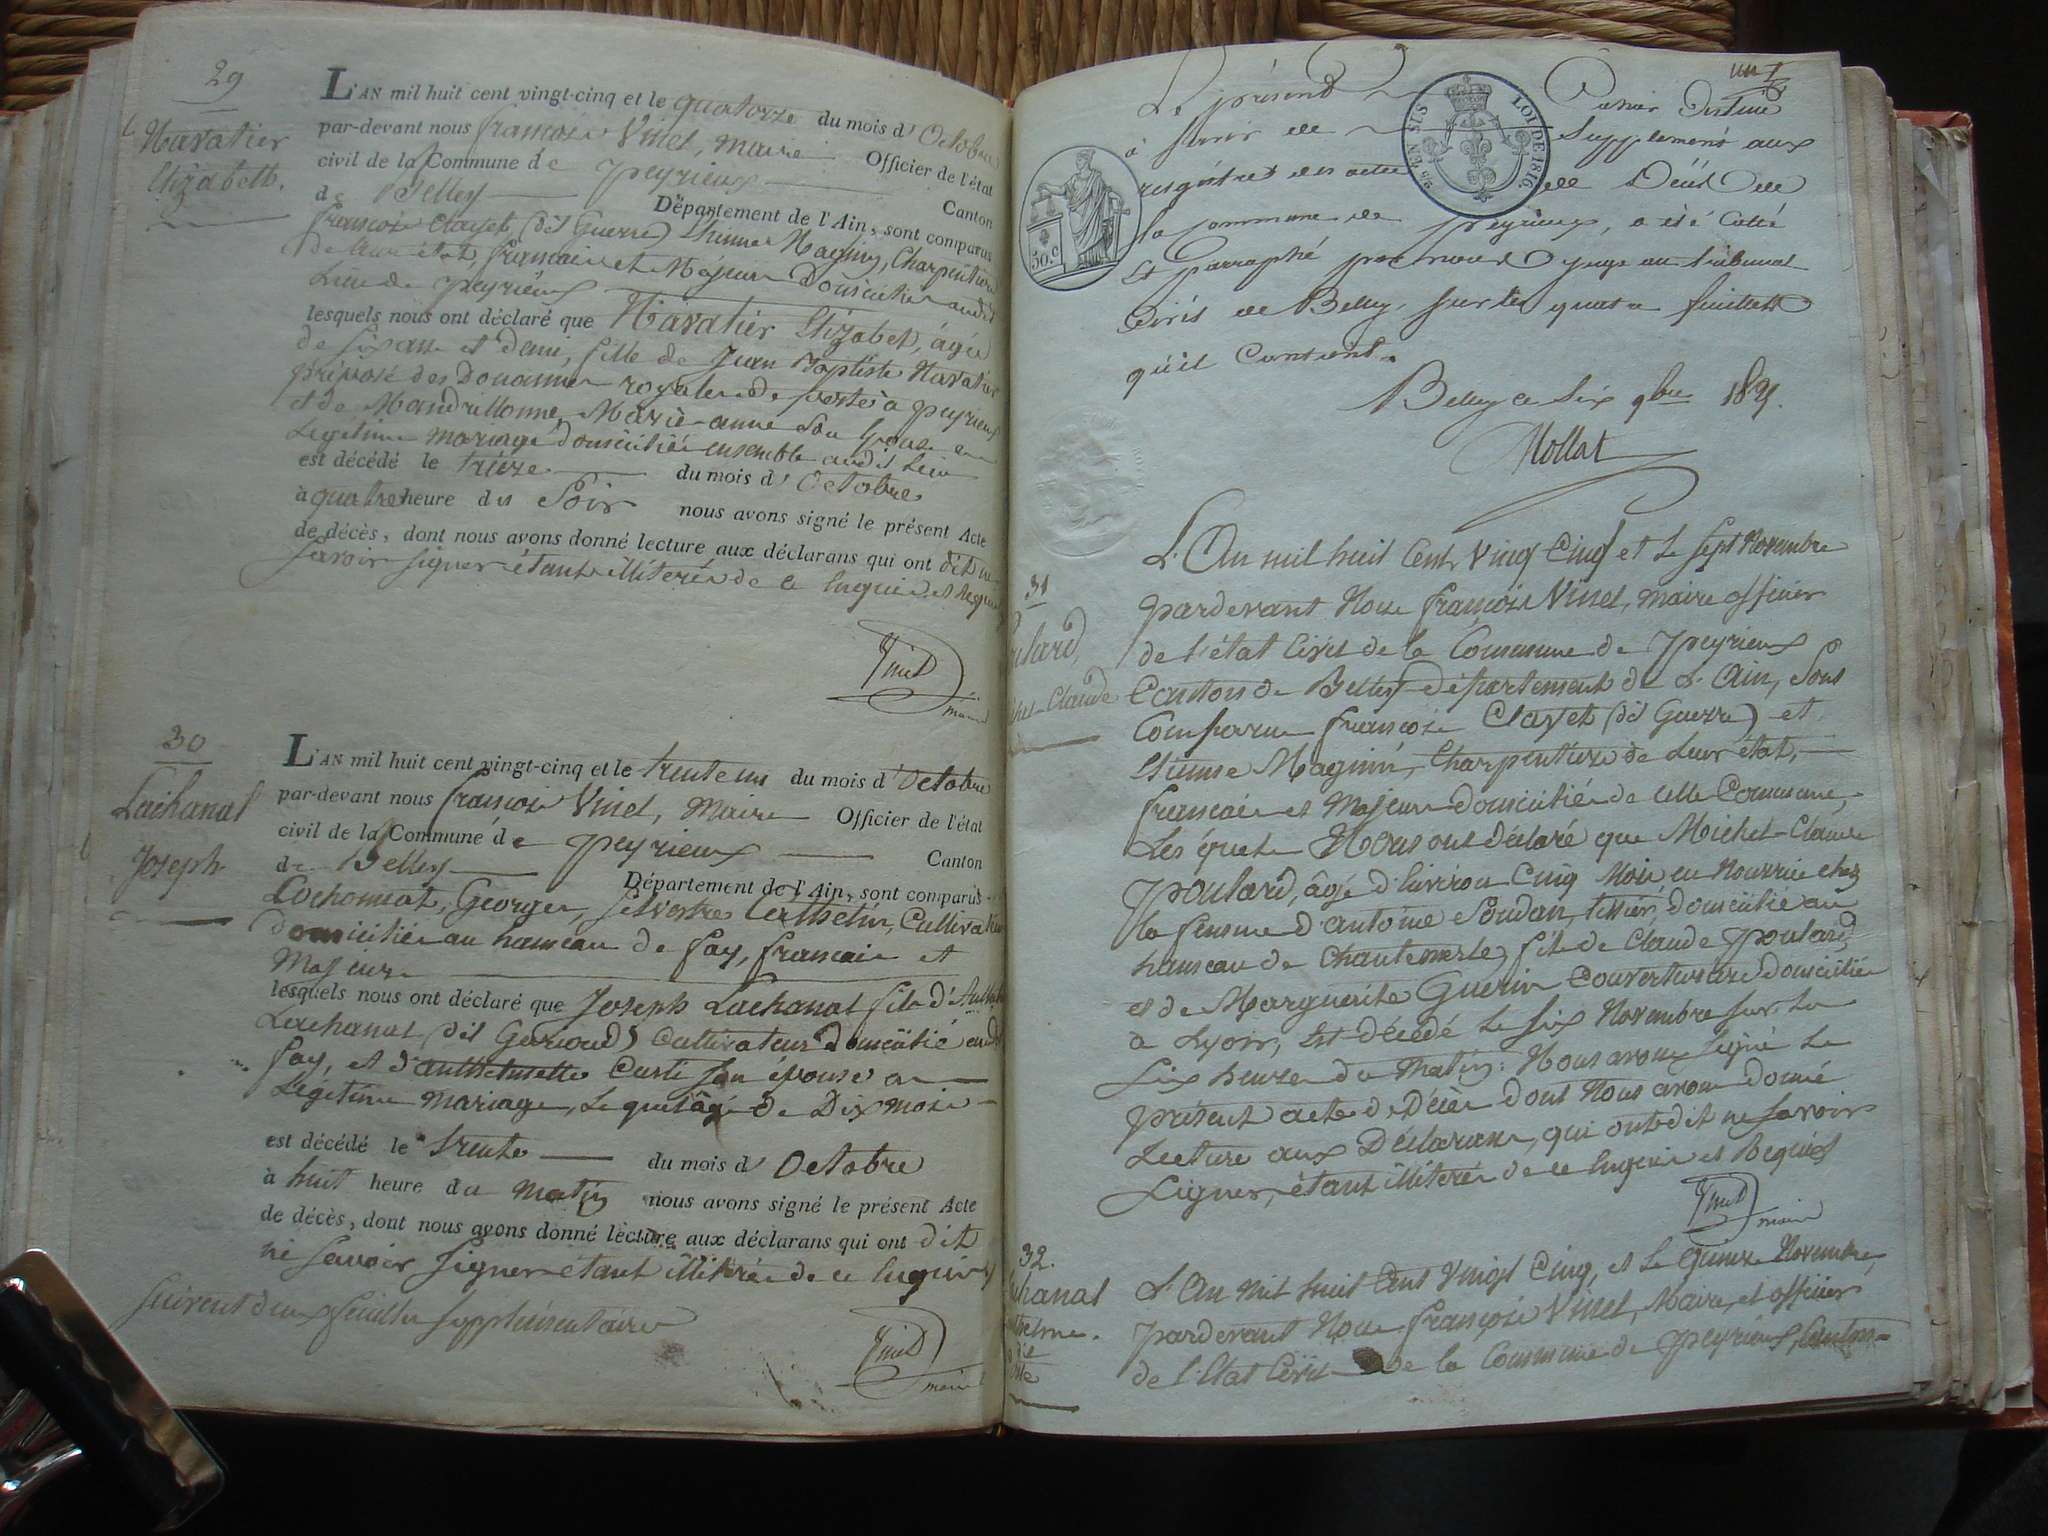 29
Navatier
Elizabeth.
L'AN mil huit cent vingt-cinq et le quatorze du mois d'Octobre
par-devant nous françois Vinet, maire Officier de l'état
civil de la Commune de Peyrieux Canton
de Belley Département de l'Ain, sont comparus
françois Clayet (dit Guerre) Etienne Magnin, Charpentiers
de leur état, français et Majeurs Domiciliés audit
Lieu de peyrieux
lesquels nous ont déclaré que Navatier Elizabet, âgée
de six ans et demi, fille de Jean Baptiste Navatier
préposé des Douannes royales de poste à peyrieux
et de Mandrillonne, Marie-anne son épouse en
Légitime mariage domiciliés ensemble audit Lieu
est décédé le treize du mois d'Octobre
à quatre heure du Soir nous avons signé le présent Acte
de décès, dont nous avons donné lecture aux déclarans qui ont dit ne
savoir signer étant illiterés de ce enquis et requis
Vinet
maire
30
Lachanal
Joseph
L'AN mil huit cent vingt-cinq et le trente un du mois d'Octobre
par-devant nous françois Vinet, Maire Officier de l'état
civil de la Commune de peyrieux Canton
de Belley Département de l'Ain, sont comparus
Lochonnat, Georges, Silvestre Cultivateurs
domiciliés au hameau de fay, français et
Majeurs
lesquels nous ont déclaré que Joseph Lachanal fils d'
Lachanal (dit Gerioud) Cultivateur domicilié au dit
fay, et d'anthelmette Curti son épouse en
Légitime mariage, Lequel âgé de Dix mois
est décédé le trente du mois d'Octobre
à huit heure du matin nous avons signé le présent Acte
de décès, dont nous avons donné lecture aux déclarans qui ont dit
ne savoir signer étant illiterés de ce enquis
Vinet
maire
suivent deux feuilles supplémentaires
un
Le présent Cahier Destiné
à servir de Supplément aux
registres des actes de Décès de
la Commune de peyrieux, a été Cotté
Et parraphé par nous juge au tribunal
Civil de Belley, sur les quatre feuillets
qu'il Contient.
Belley ce six 9bre 1825.
Mollat
2/5 EN SUS
LOI DE 1816
50.c
31
Poulard,
Michel-Claude
L'An mil huit Cent Vingt Cinq et le sept Novembre
pardevant Nous françois Vinet, maire officier
de l'état Civil de la Commune de Peyrieux
Canton de Belley département de L'Ain, sont
Comparus françois Clayet (dit Guerre) et
Etienne Magnin, Charpentiers de leur état,
français et Majeurs domiciliés de cette Commune,
Lesquels Nous ont Déclaré que Michel-Claude
Poulard, âgé d'Environ Cinq Mois en Nourrice chez
la femme d'antoine Soudan, tissier, domicilié au
hameau de Chantemerle, fils de Claude Poulard
et de Marguerite Guerin Couverturiers domiciliés
à Lyon, Est décédé le six Novembre sur les
six heures du Matin. Nous avons signé le
présent acte de Décès dont Nous avons donné
Lecture aux Déclarans, qui ont dit ne savoir
Signer, étant illiterés de ce enquis et Requis
Vinet
maire
32.
Lachanal
Anthelme.
dit
L'An mil huit Cent Vingt Cinq, et le Quinze Novembre,
pardevant Nous françois Vinet, Maire, et officier
de l'Etat Civil de la Commune de Peyrieux, Canton